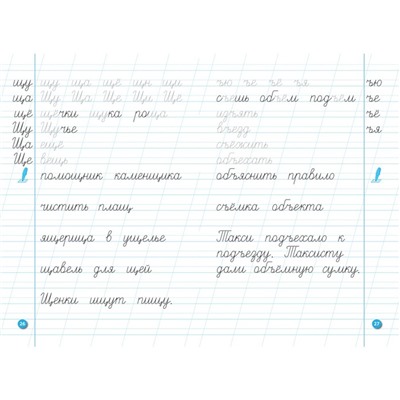 щу щу ща щё щн щи
ща Щу Ща Ще Щи Щё
щё щёчки щука роща
Щу Щучье
Ща ещё
Ще вещь
помощник каменщика
чистить плащ
ящерица в ущелье
щавель для щей
Щенки ищут пищу.
26
ъю ъе ъё ъя ъю
съешь объём подъём ъе
изъять ъё
въезд ъя
объехать
объяснить правило
съёмка объекта
Такси подъехало к
подъезду. Таксисту
дали объёмную сумку.
27